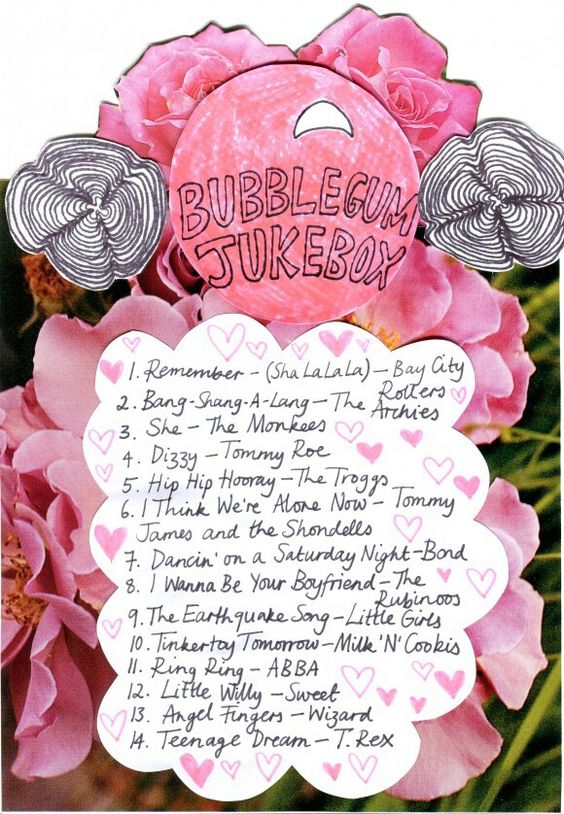 BUBBLEGUM
JUKEBOX
1. Remember - (Sha La La La) - Bay City
Rollers
2. Bang-Shang-A-Lang - The
Archies
3. She - The Monkees
4. Dizzy - Tommy Roe
5. Hip Hip Hooray - The Troggs
6. I Think We're Alone Now - Tommy
James and the Shondells
7. Dancin' on a Saturday Night - Bond
8. I Wanna Be Your Boyfriend - The
Rubinoos
9. The Earthquake Song - Little Girls
10. Tinkertoy Tomorrow - Milk 'N' Cookis
11. Ring Ring - ABBA
12. Little Willy - Sweet
13. Angel Fingers - Wizard
14. Teenage Dream - T. Rex